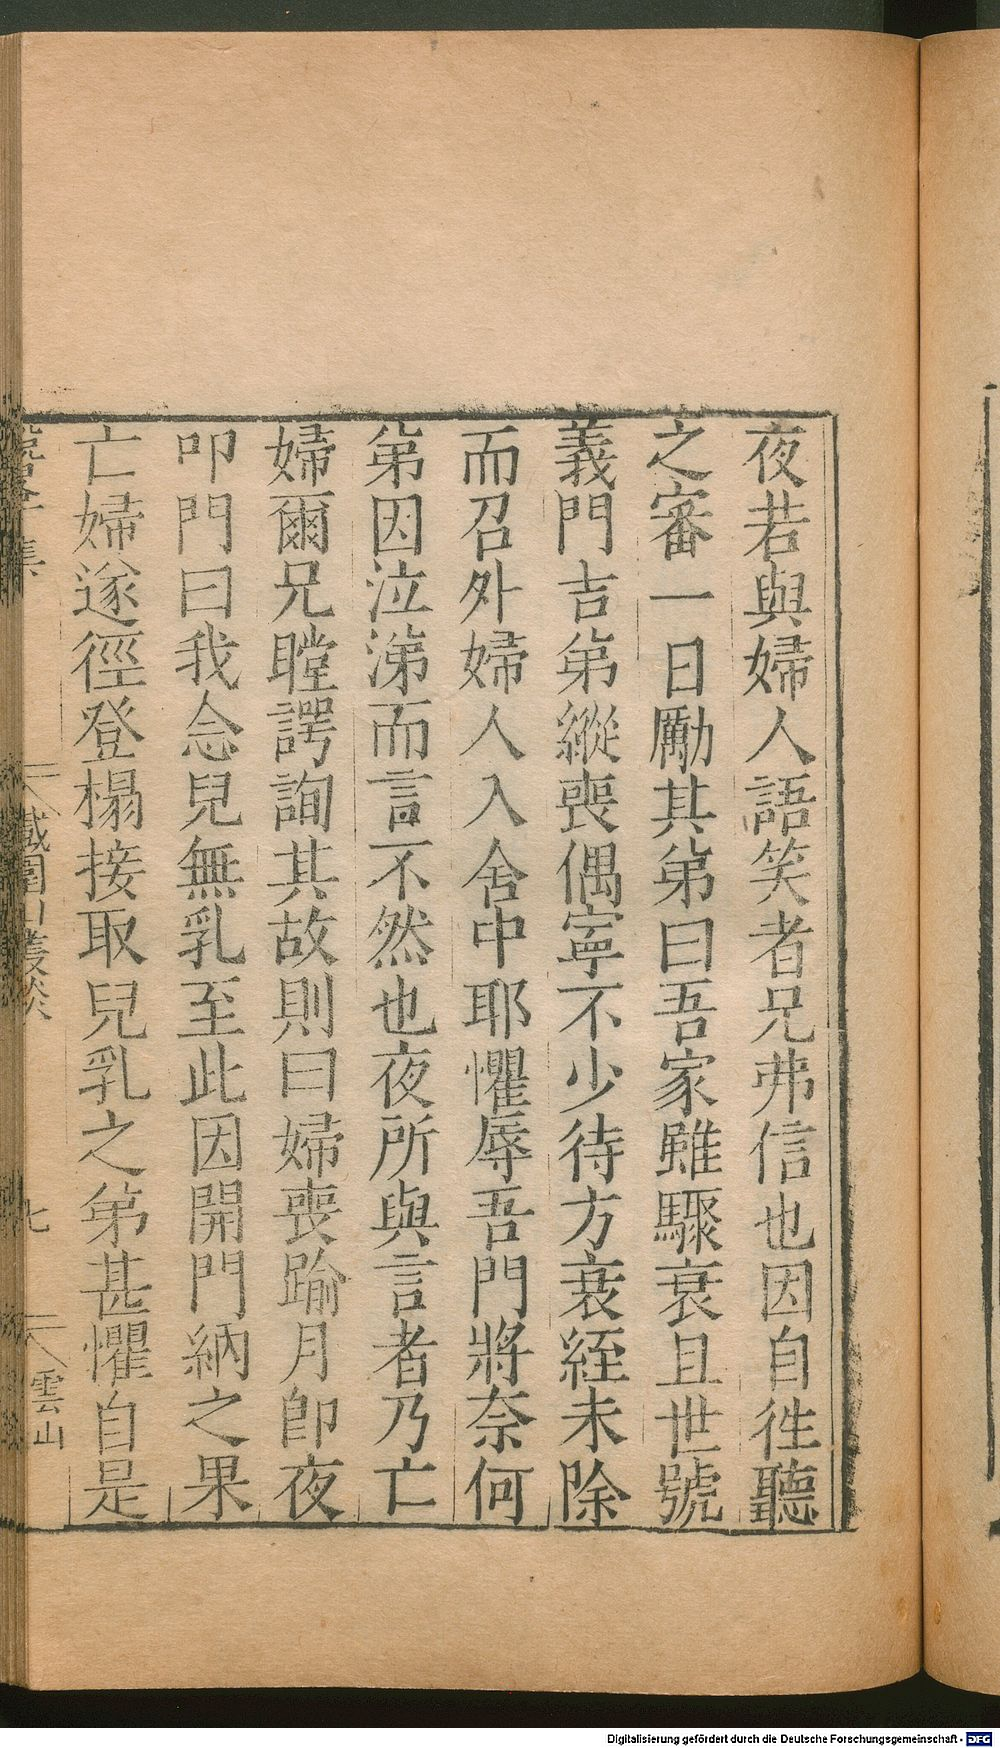 夜若與婦人語笑者兄弗信也因自徃聽
之審一日勵其弟曰吾家雖驟衰且世號
義門吉弟縱喪偶寧不少待方衰絰未除
而召外婦人入舍中耶懼辱吾門將奈何
弟因泣涕而言不然也夜所與言者乃亡
婦爾兄瞠諤詢其故則曰婦喪踰月即夜
叩門曰我念兒無乳至此因開門納之果
亡婦遂徑登榻接取兒乳之弟甚懼自是
集
鐵圍山叢談
七
雲山
Digitalisierung gefördert durch die Deutsche Forschungsgemeinschaft - DFG